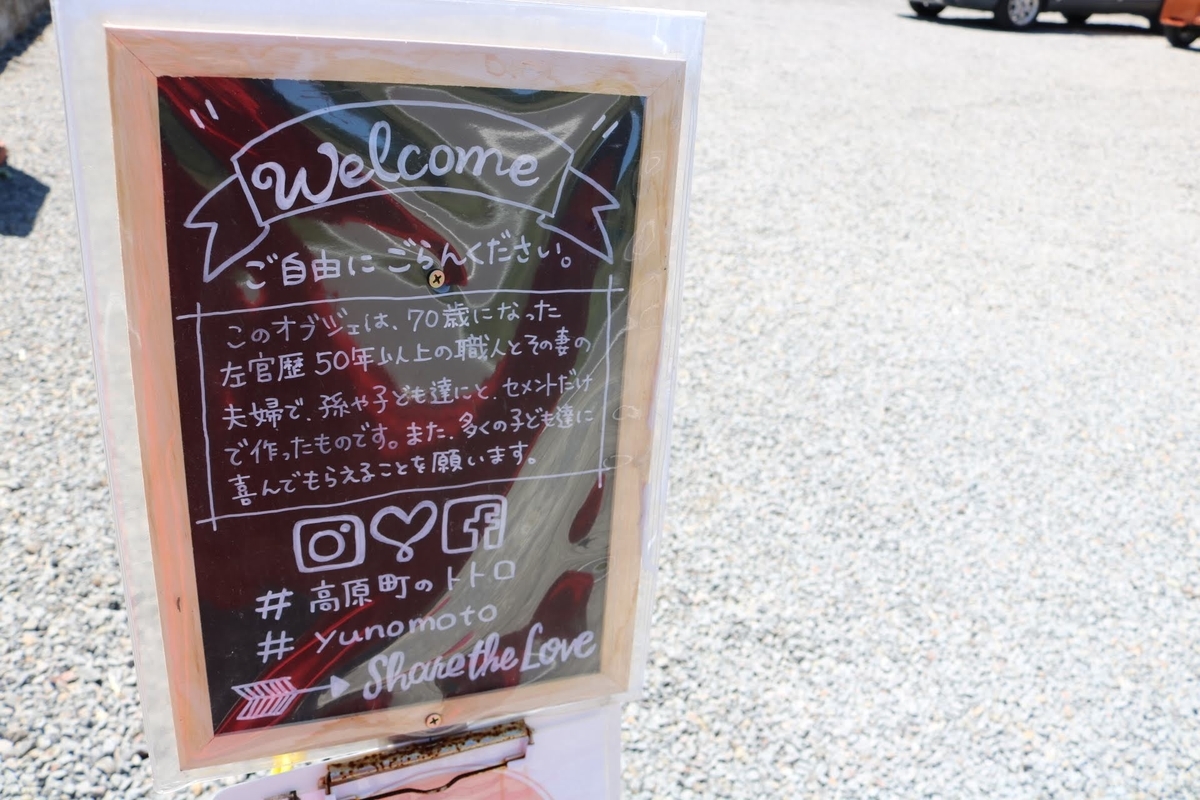 Welcome
ご自由に ごらんください。
このオブジェは、70歳になった
左官歴 50年以上の職人とその妻の
夫婦で、孫や子ども達にと、セメントだけ
で作ったものです。また、多くの子ども達に
喜んでもらえることを願います。
# 高原町のトトロ
# yunomoto
Share the Love